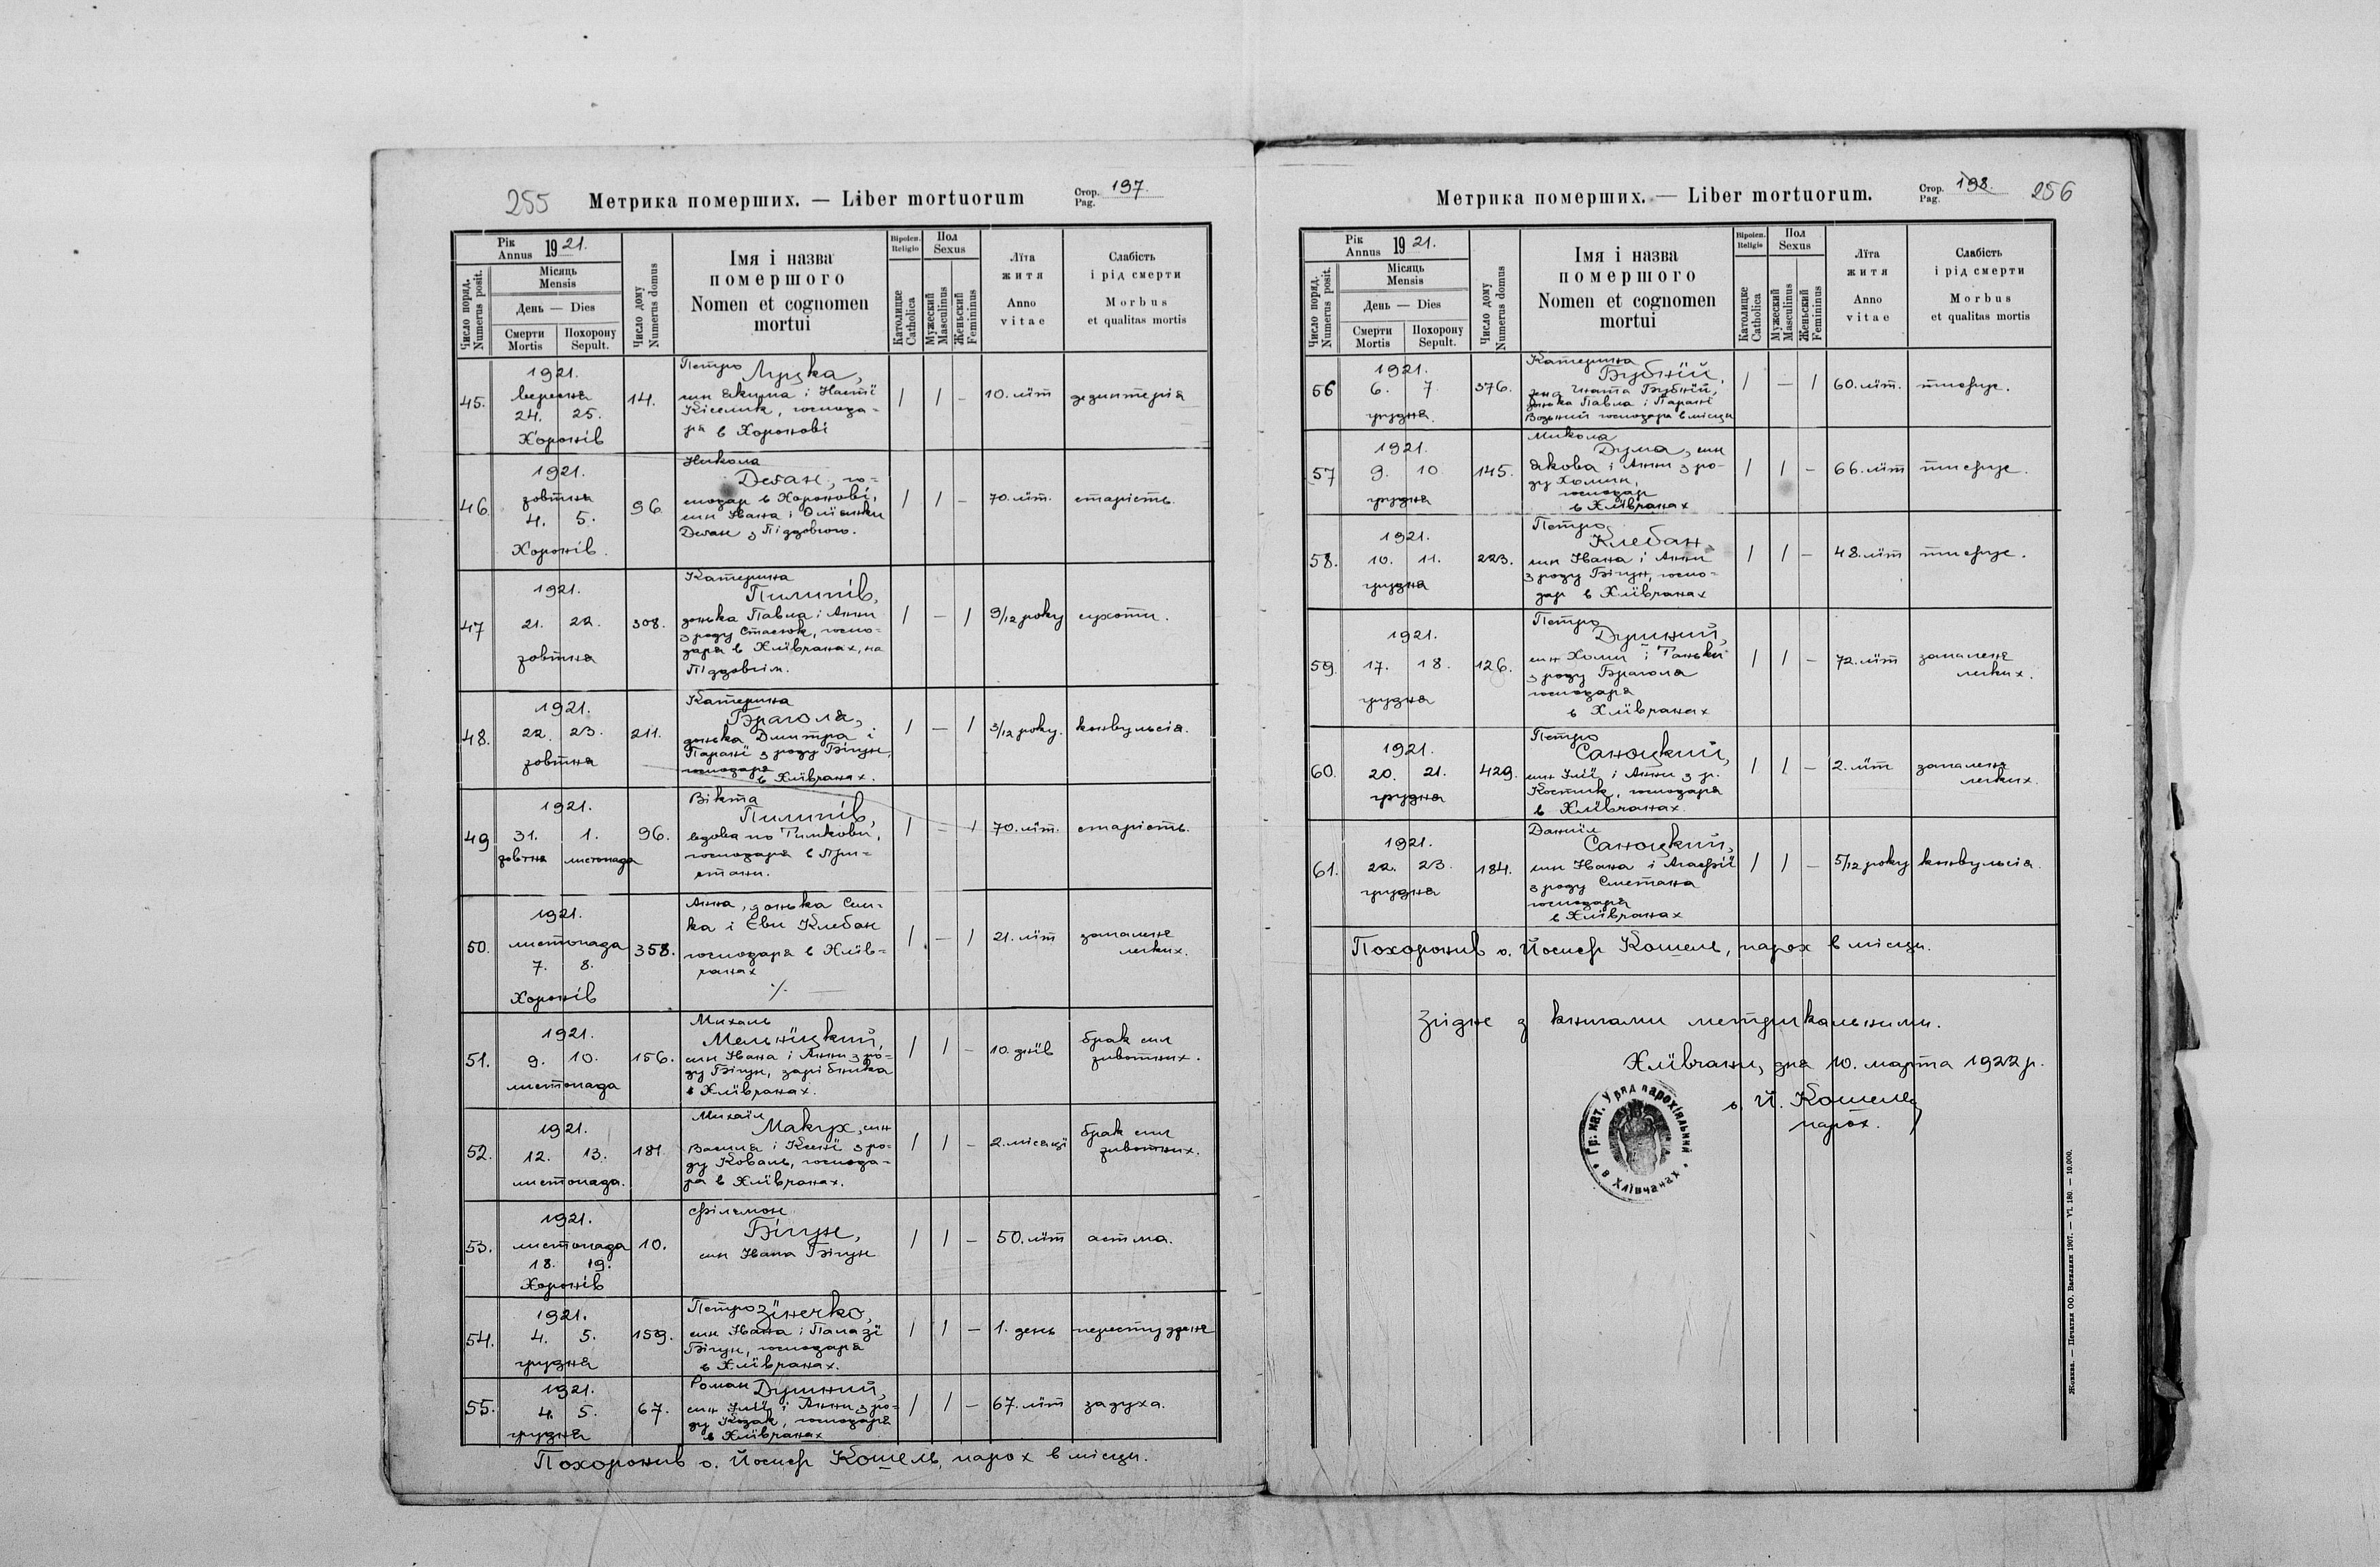 255
Метрика померших. — Liber mortuorum
Стор. 197.
Pag.
Рік
Annus 1921.
Число поряд.
Numerus posit.
Місяць
Mensis
День — Dies
Смерти
Mortis
Похорону
Sepult.
Число дому
Numerus domus
Імя і назва
помершого
Nomen et cognomen
mortui
Віроісп.
Religio
Католицке
Catholica
Пол
Sexus
Мужеский
Masculinus
Женьский
Femininus
Лїта
житя
Anno
vitae
Слабість
і рід смерти
Morbus
et qualitas mortis
45.
1921.
вересня
24. 25.
Хоронів
14.
Петро
Луцка,
син Якима і Настї
Кіселик, господа-
ря в Хоронові
/ / –
10. лїт
дезинтерія
46
1921.
жовтня
4. 5.
Хоронів.
96
Никола
Деган, го-
сподар в Хоронові,
син Ивана і Олїянки
Деган з Піддовгого.
/ / –
70. лїт.
старість.
47
1921.
21. 22.
жовтня
308.
Катерина
Пилипів,
донька Павла і Анни
з роду Стасюк, госпо-
даря в Хлївчанах, на
Піддовгім.
/ – /
9/12 року
сухоти.
48.
1921.
22. 23.
жовтня
211.
Катерина
Брагола,
донька Дмитра і
Паранї з роду Бігун,
господаря
в Хлївчанах.
/ – /
3/12 року.
конвульсія.
49
1921.
31. 1.
жовтня листопада
96.
Вікта
Пилипів,
вдова по Тимкови,
господаря в При-
стани.
/ – /
70. лїт.
старість.
50.
1921.
листопада
7. 8.
Хоронів
358.
Анна, донька Сень-
ка і Еви Клебан
господаря в Хлїв-
чанах
·/. —
/ – /
21. лїт
запаленя
легких.
51.
1921.
9. 10.
листопада
156.
Михаль
Мельнїцкий,
син Ивана і Анни з ро-
ду Бігун, зарібника
в Хлївчанах.
/ / –
10. днїв
брак сил
животних.
52.
1921.
12. 13.
листопада.
181
Михаїл
Макух, син
Василя і Ксенї з ро-
ду Коваль, господа-
ря в Хлївчанах.
/ / –
2. місяцї
брак сил
животних.
53.
1921.
листопада
18. 19.
Хоронів
10.
Філємон
Бігун,
син Ивана Бігун
/ / –
50. лїт
астма.
54.
1921.
4. 5.
грудня
159.
Петро Зїнечко,
син Ивана і Палазї
Бігун, господаря
в Хлївчанах.
/ / –
1. день
перестудженя
55.
1921.
4. 5.
грудня
67.
Роман Душний,
син Ілії і Анни з ро-
ду Козак, господаря
в Хлївчанах
/ / –
67. лїт
задуха.
Похоронив о. Йосиф Кошель, парох в місци.
Метрика померших. — Liber mortuorum.
Стор. 198.
Pag.
256
Рік
Annus 1921.
Число поряд.
Numerus posit.
Місяць
Mensis
День — Dies
Смерти
Mortis
Похорону
Sepult.
Число дому
Numerus domus
Імя і назва
помершого
Nomen et cognomen
mortui
Віроісп.
Religio
Католицке
Catholica
Пол
Sexus
Мужеский
Masculinus
Женьский
Femininus
Лїта
житя
Anno
vitae
Слабість
і рід смерти
Morbus
et qualitas mortis
56
1921.
6. 7.
грудня.
376.
Катерина
Бубнїй,
жена Ігната Бубнїй,
донька Павла і Паранї
господаря в місци
/ – /
60. лїт.
тифус.
57
1921.
9. 10
грудня
145.
Микола
Дума, син
Якова і Анни з ро-
ду Хомин,
господар
в Хлївчанах
/ / –
66. лїт
тифус.
58.
1921.
10. 11.
грудня
223.
Петро
Клебан,
син Ивана і Анни
з роду Бігун, госпо-
дар в Хлївчанах
/ / –
48. лїт
тифус.
59.
1921.
17. 18.
грудня
126.
Петро
Душний,
син Хоми і Таньки
з роду Брагола
господаря
в Хлївчанах
/ / –
72. лїт
запаленя
легких.
60.
1921.
20. 21.
грудня
429.
Петро
Саноцкий,
син Ілїї і Анни з р.
Костик, господаря
в Хлївчанах.
/ / –
2. лїт
запаленя
легких.
61.
1921.
22. 23.
грудня
184.
Данїїл
Саноцкий,
син Ивана і Агафії
з роду Сметана
господаря
в Хлївчанах
/ / –
5/12 року
конвульсія.
Похоронив о. Йосиф Кошель, парох в місци.
Згідне з книгами метрикальними.
Хлївчани, дня 10. марта 1922 р.
о. Й. Кошель
парох.
Гр: кат. Уряд парохіяльний
в Хлївчанах
Жовква. — Печатня ОО. Василиян 1907. — VI. 180. — 10.000.